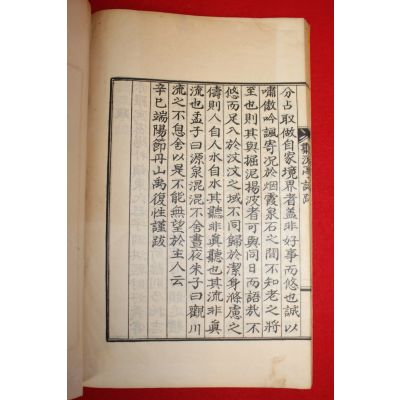 聽流亭詩跋
分占取做自家境界者蓋非好事而悠也誠以
嘯傲吟諷寄况於烟霞泉石之間不知老之將
至也則其與掘泥揚波者可與同日而語哉不
悠而足入於汶汶之域不同歸於潔身滌慮之
儔則人自人水自水其聽非真聽也其流非真
流也孟子曰源泉混混不舍晝夜朱子曰觀川
流之不息舍以是不能無望於主人云
辛巳端陽節丹山禹復性謹跋